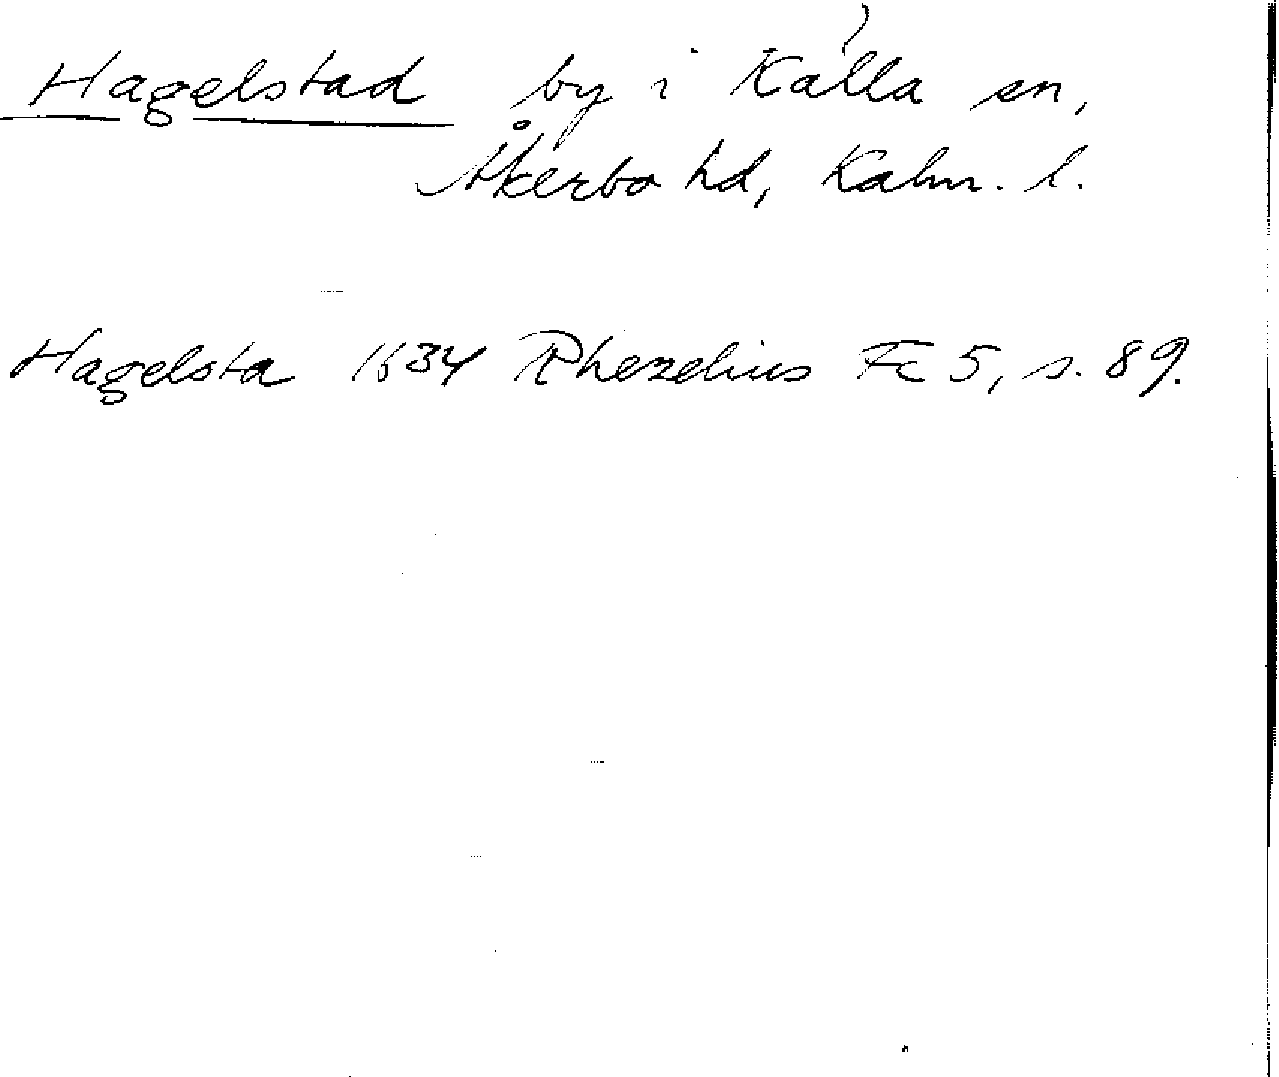 Hagelstad by i Källa sn,
Åkerbo hd, Kalm. l.
Hagelsta 1634 Rhezelius Fc 5, s. 89.